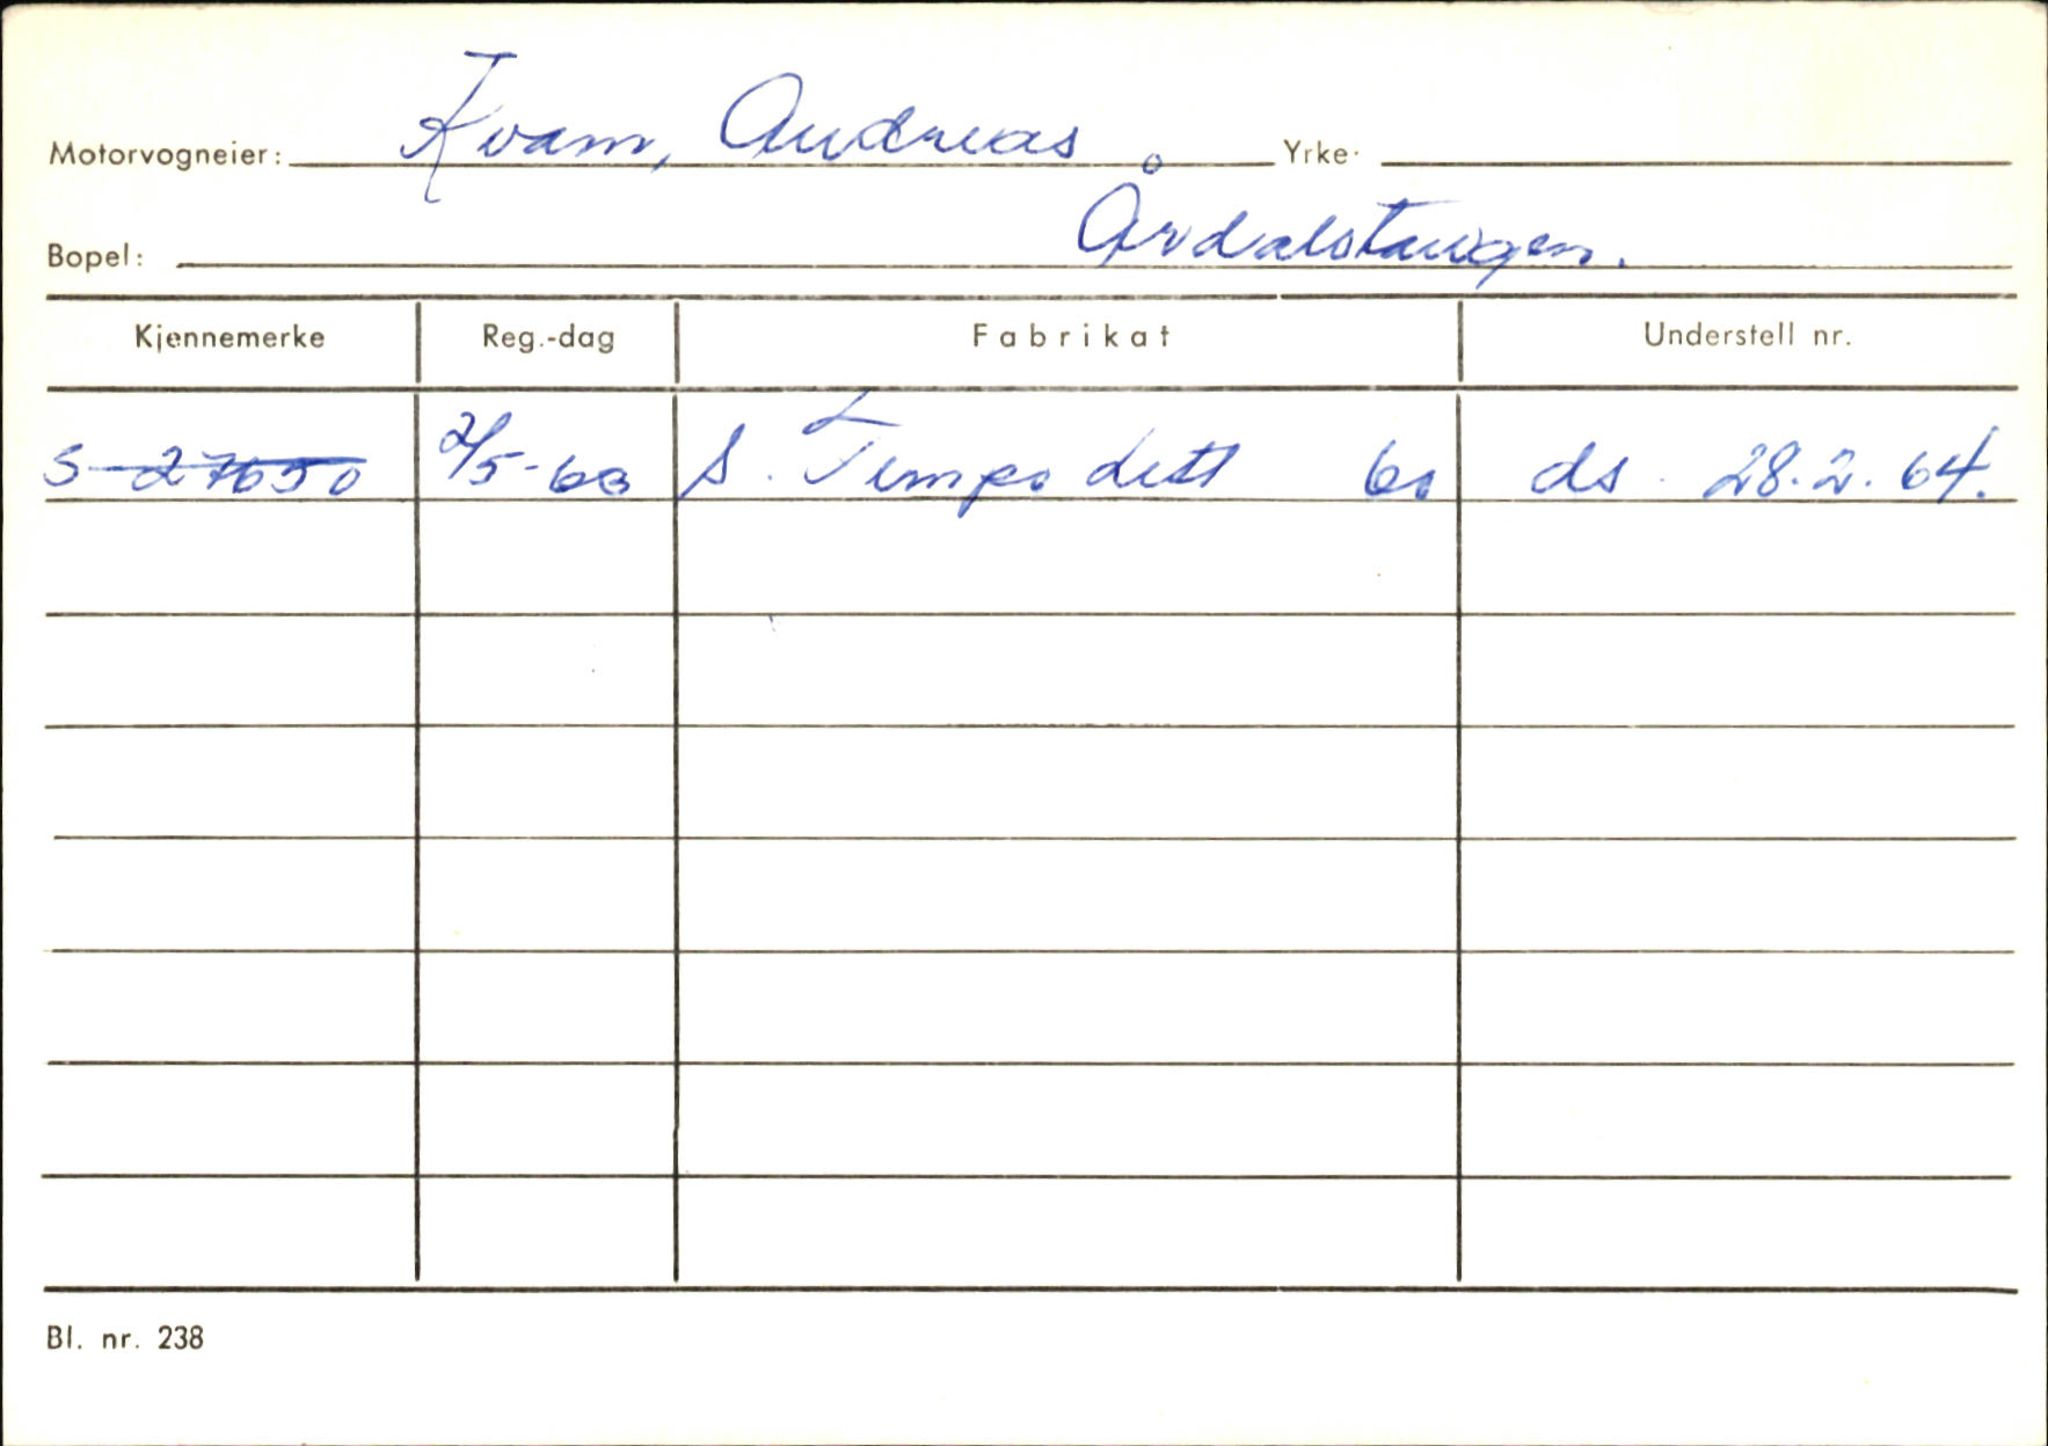 Motorvogneier: Kvam, Andreas Yrke:
Bopel: Årdalstangen.
Kjennemerke Reg.-dag Fabrikat Understell nr.
S-27650 2/5-63 S. Tempo Lett 60 ds. 28.2.64.
Bl. nr. 238